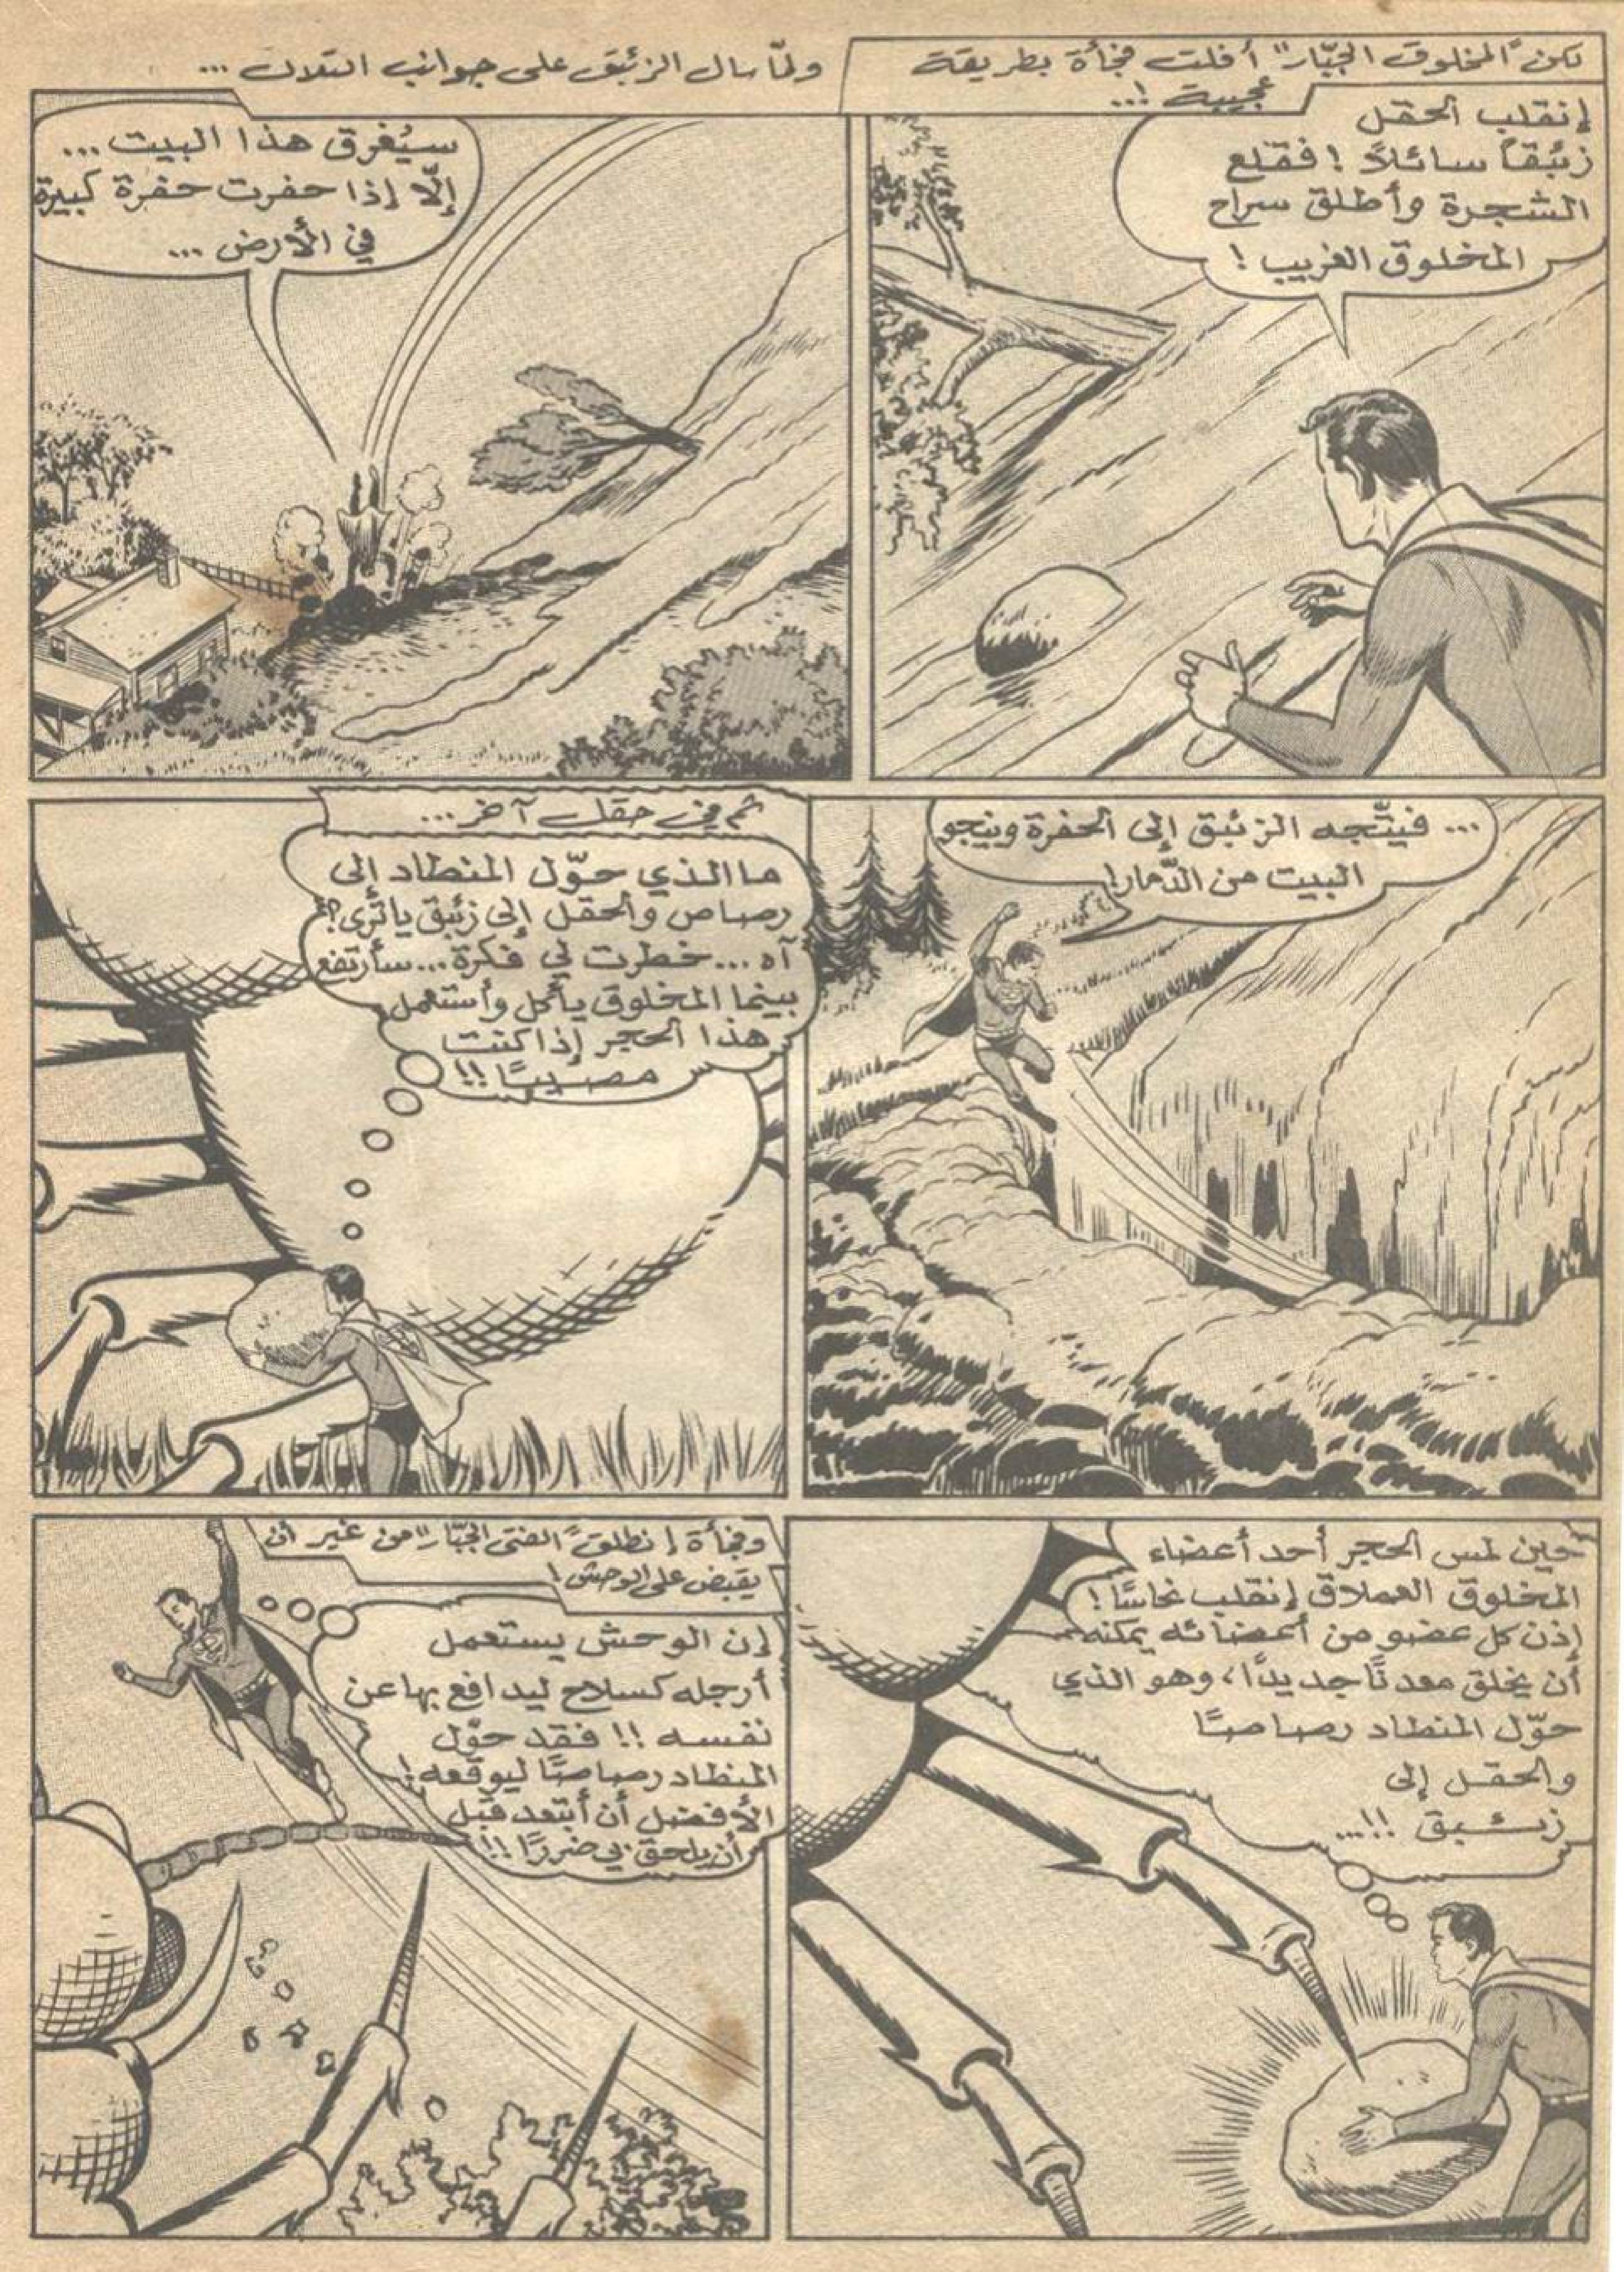 لكن "المخلوق الجبّار" أفلت فجأة بطريقة
عجيبة !..
إنقلب الحقل
زئبقاً سائلاً ! فقلع
الشجرة وأطلق سراح
المخلوق الغريب !
ولمّا سال الزئبق على جوانب التلال ...
سيُغرق هذا البيت ...
إلّا إذا حفرت حفرة كبيرة
في الأرض ...
... فيتّجه الزئبق إلى الحفرة وينجو
البيت من الدّمار!
ثم في حقل آخر ...
ما الذي حوّل المنطاد إلى
رصاص والحقل إلى زئبق يا ترى؟
آه ... خطرت لي فكرة ... سأرتفع
بينما المخلوق يأكل وأستعمل
هذا الحجر إذا كنت
مصيبًا !!
حين لمس الحجر أحد أعضاء
المخلوق العملاق إنقلب نحاسًا !
إذن كل عضو من أعضائه يمكنه
أن يخلق معدنًا جديدًا، وهو الذي
حوّل المنطاد رصاصًا
والحقل إلى
زئبق !!...
وفجأة إنطلق "الفتى الجبّار" من غير أن
يقبض على الوحش !
إن الوحش يستعمل
أرجله كسلاح ليدافع بها عن
نفسه !! فقد حوّل
المنطاد رصاصًا ليوقعه !
الأفضل أن أبتعد قبل
أن يلحق بي ضررًا !!